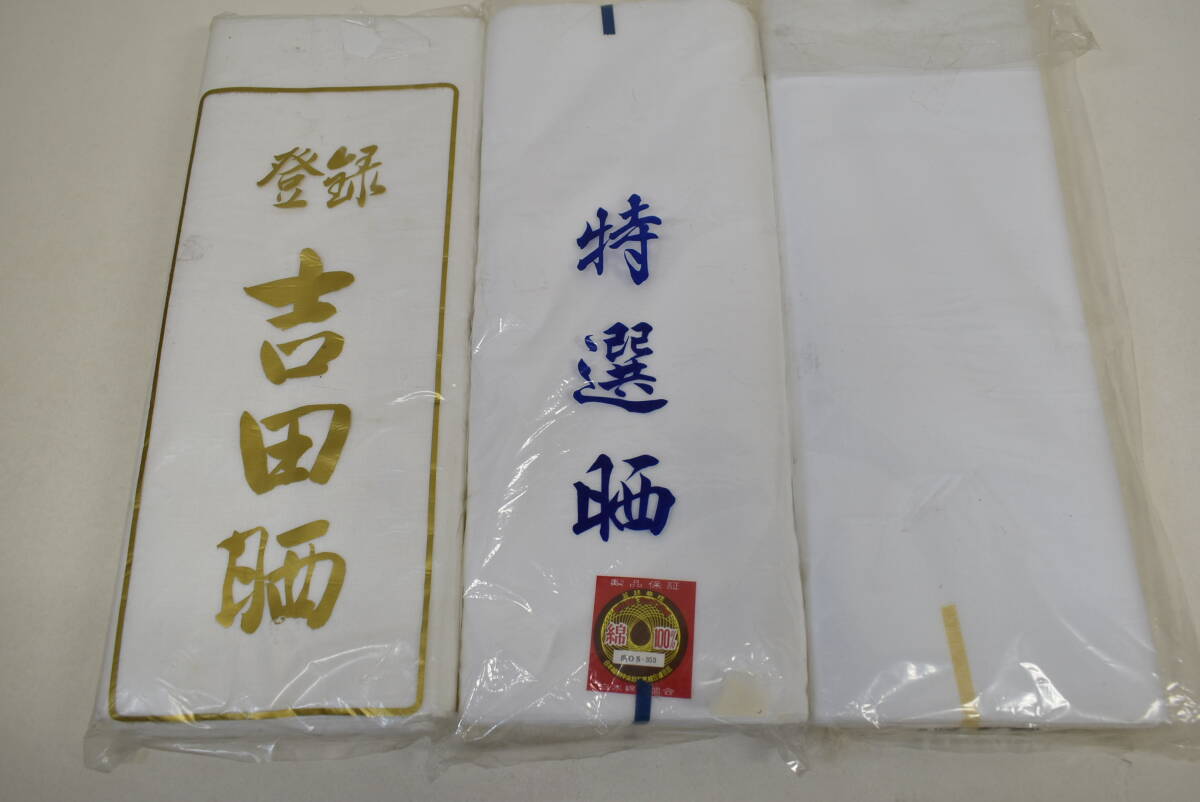 登録
吉田晒
特選晒
製品保証
綿 100%